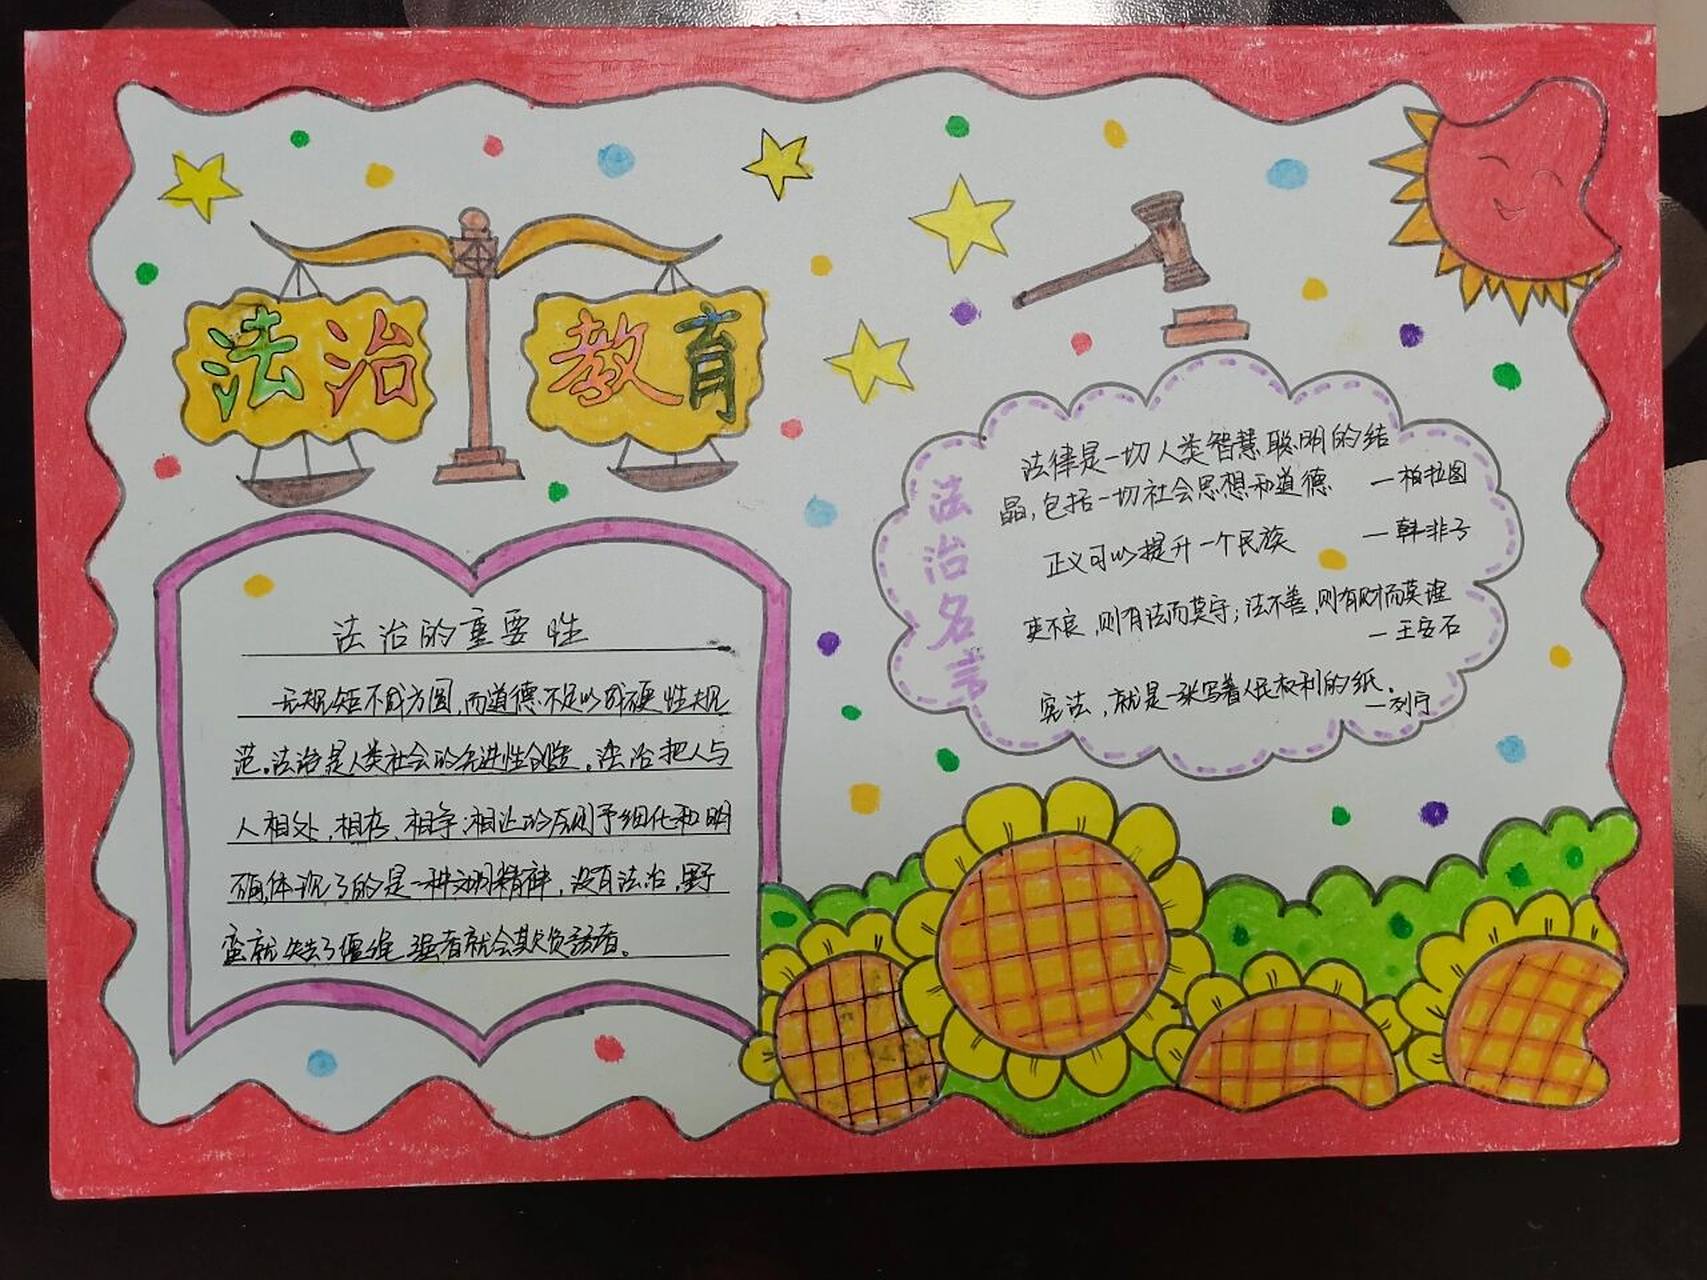 法治教育
法治的重要性
无规矩不成方圆,而道德不足以成硬性规
范。法治是人类社会的先进性创造。法治把人与
人相处、相存、相争、相让的原则予细化和明
确,体现了的是一种文明精神,没有法治,野
蛮就失去了缰绳,强者就会欺负弱者。
法治名言
法律是一切人类智慧聪明的结
晶,包括一切社会思想和道德 —柏拉图
正义可以提升一个民族 —韩非子
吏不良,则有法而莫守;法不善,则有财而莫理
—王安石
宪法,就是一张写着人民权利的纸。
—列宁